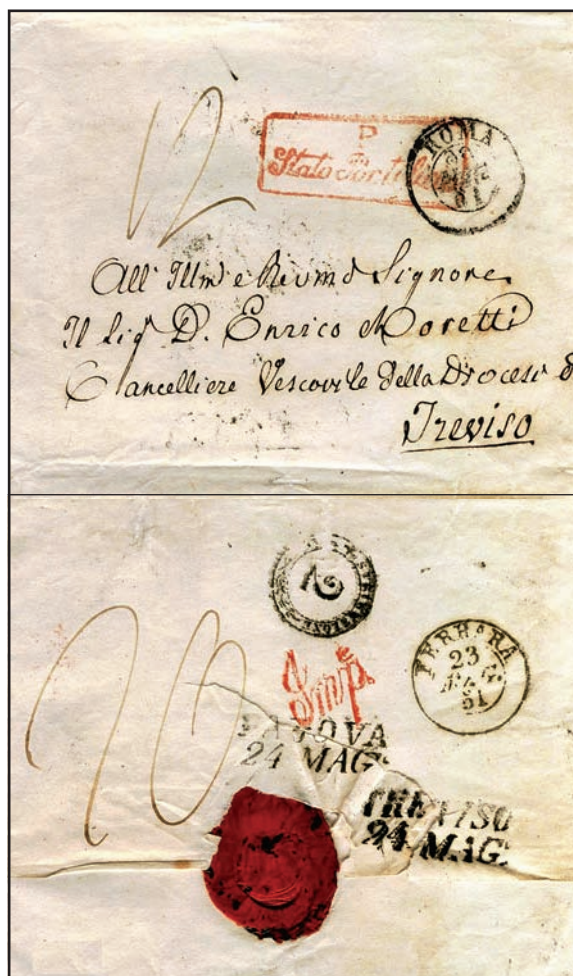 12
P.
Stato Pontificio
ROMA
MAG
51
All' Illmo e Revmo Signore
Il Sig D. Enrico Moretti
Cancelliere Vescovile della Diocesi d
Treviso
DISTRIBUZIONE
2
FERRARA
23
MAG
51
70
PADOVA
24 MAG:
TREVISO
24 MAG: